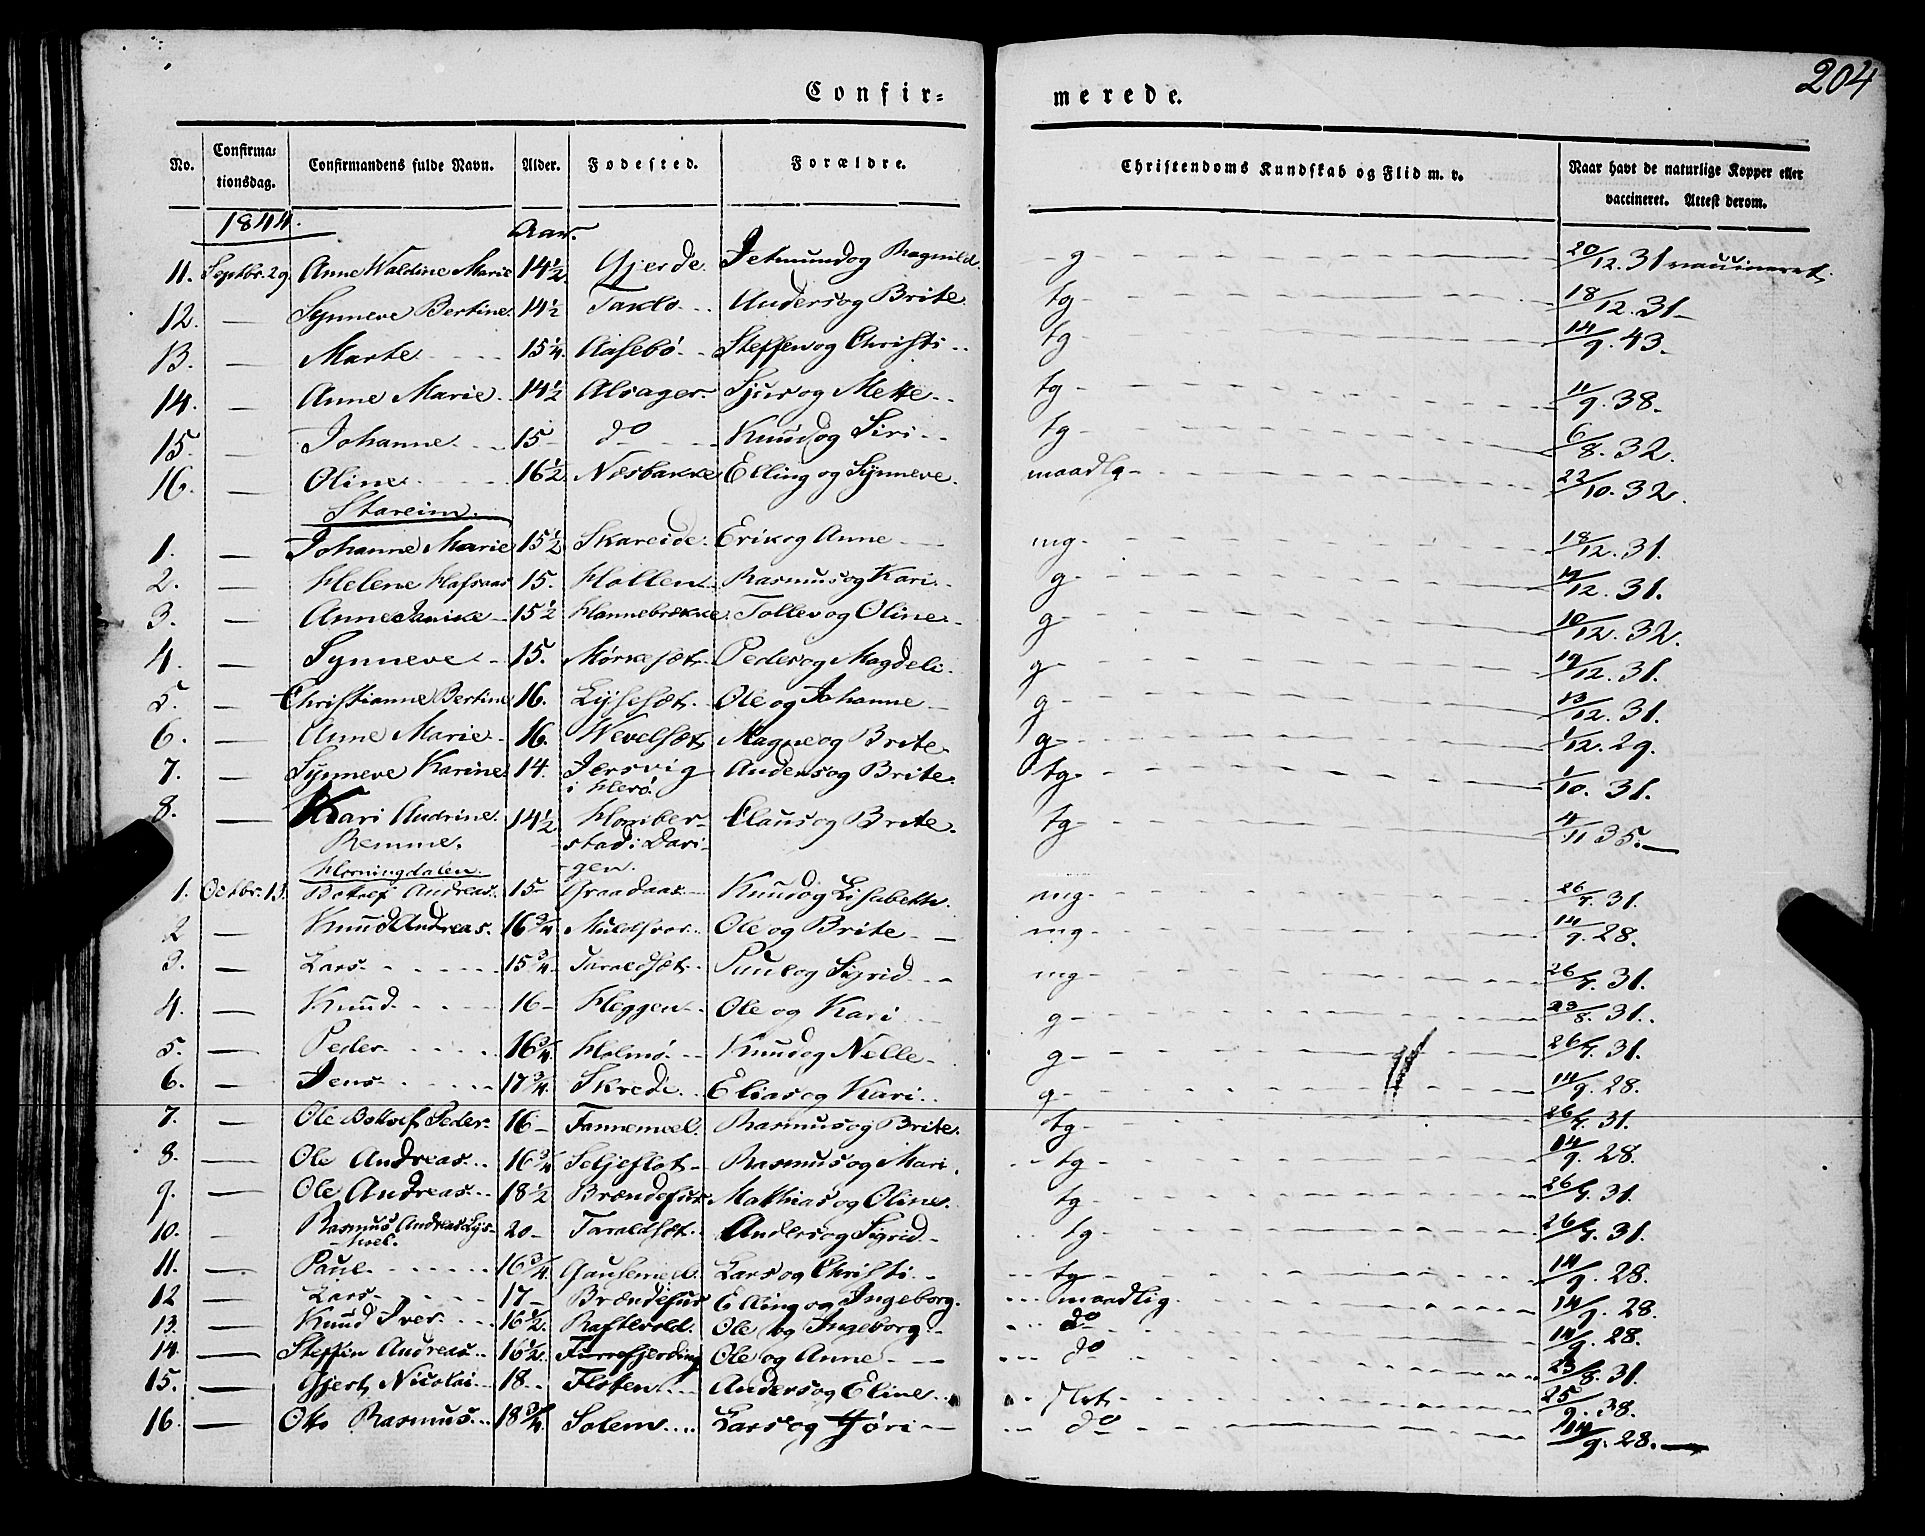 204
Confir= merede.
No. Confirma= tionsdag. Confirmandens fulde Navn. Alder. Fodested. Forældre. Christendoms Kundskab og Flid m. v. Naar havt de naturlige Kopper eller vaccineret. Attest derom.
1844. Aar.
11. Septbr. 29. Anne Waldine Marie 14½ Gjerde. Jetmund og Ragnild g 20/12. 31 vaccineret.
12. — Synneve Bertine 14½ Taklo Anders og Brite tg 18/12. 31
13. — Marte 15¼ Aasebö Steffen og Christi tg 14/9. 43
14. — Anne Marie 14½ Alsager Sjur og Mette tg 11/9. 38
15. — Johanne 15 do Knud og Siri tg 6/8. 32.
16. — Oline 16½ Nesbakke Elling og Synneve maadlg 22/10. 32.
Stareim.
1. — Johanne Marie 15½ Skareide Erik og Anne mg 18/12. 31.
2. — Helene Hafsaas 15. Hollen Rasmus og Kari g 14/12. 31.
3. — Anne Janike 15½ Hannebrekke Tollev og Oline g 10/12. 32.
4. — Synneve 15. Mörkesæt Peder og Magdeli g 14/12. 31.
5. — Christianne Bertine 16. Lÿsesæt Ole og Johanne g 13/12. 31.
6. — Anne Marie 16. Wevelsæt Magne og Brite g 1/12. 29.
7. — Synneve Karine 14. Jersvig i Herö Anders og Brite tg 1/10. 31.
8. — Kari Andrine Remme. 14½ Homber-stad i Davi-gen. Claus og Brite tg 4/11 35.
Horningdalen.
1. Octbr. 13. Botolf Andreas 15 Graadaas Knud og Lisabeth mg 26/7. 31.
2 — Knud Andreas. 16¾ Muldsvor Ole og Brite mg 14/9. 28.
3. — Lars 15¾ Taraldsæt Paul og Sigrid mg 26/7. 31.
4. — Knud 16 Heggen Ole og Kari g 23/8. 31.
5. — Peder 16¾ Holmö Knud og Nelle g 26/7. 31.
6. — Jens 17¾ Skrede Elias og Kari g 14/9. 28.
7. — Ole Botolf Peder 16 Tannemoel Rasmus og Brite tg 26/7. 31.
8. — Ole Andreas 16¾ Seljeflot Rasmus og Mari tg 14/9. 28.
9. — Ole Andreas 18½ Brændefur Mathias og Oline tg 26/7. 31.
10. — Rasmus Andreas 20 Taraldsæt Anders og Sigrid tg 26/7. 31.
11. — Paul 16¾ Gausemel Lars og Christi tg 14/9. 28.
12 — Lars 17 Brændefur Elling og Ingeborg. maadlig 14/9. 28.
13. — Knud Iver 16½ Raftevold. Ole og Ingeborg do 14/9. 28.
14. — Steffen Andreas 16½ Furrefjerding Ole og Anne do 23/8. 31.
15. — Gjert Nicolai 18 Floten Anders og Eline slet 25/9. 38.
16. — Ole Rasmus 18¾ Solem Lars og Jöri do 14/9. 28.